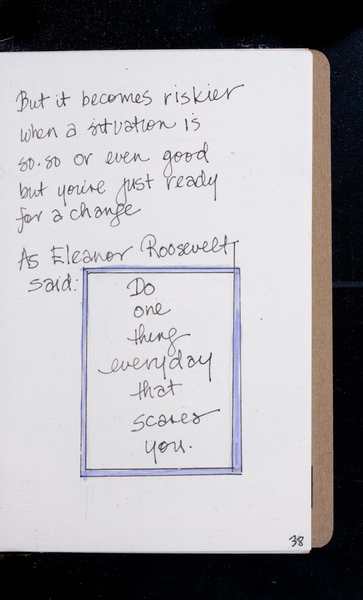 But it becomes riskier
when a situation is
so.so or even good
but you're just ready
for a change
As Eleanor Roosevelt
said:
Do
one
thing
everyday
that
scares
you.
38